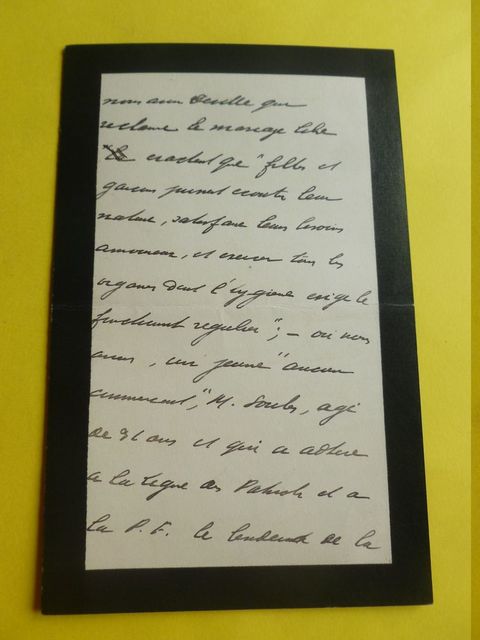 nous avons Deville qui
reclame le mariage libre
"Le
voulant que "filles et
garçons puissent écouter leur
nature, satisfaire leurs besoins
amoureux, et exercer tous les
organes dont l'hygiène exige le
fonctionnt régulier"; – où nous
avons, un jeune "ancien
commerçant", M. Soulas, agé
de 31 ans et qui a adhéré
a la Ligue des Patriotes et a
la P. F. le lendemain de la